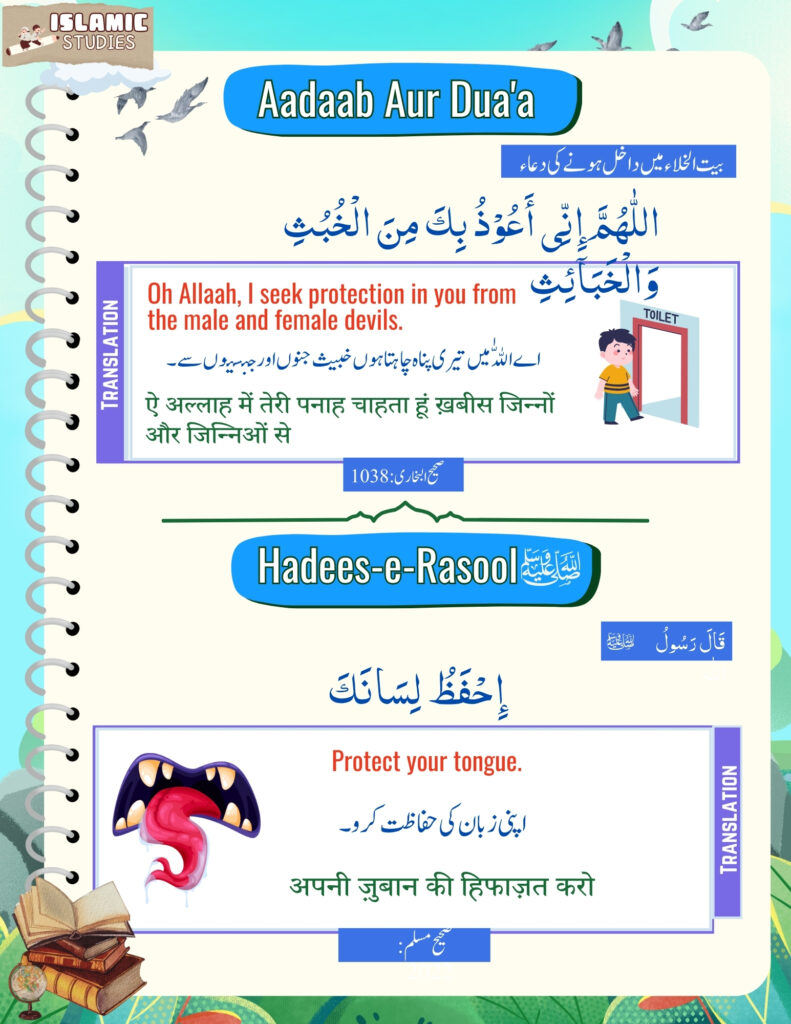 ISLAMIC
STUDIES
Aadaab Aur Dua'a
بیت الخلاء میں داخل ہونے کی دعاء
اللّٰهُمَّ إِنِّى أَعُوْذُ بِكَ مِنَ الْخُبُثِ
وَالْخَبَآئِثِ
TRANSLATION
Oh Allaah, I seek protection in you from
the male and female devils.
اے اللہ میں تیری پناہ چاہتا ہوں خبیث جنوں اور سے۔
ऐ अल्लाह में तेरी पनाह चाहता हूं ख़बीस जिन्नों
और जिन्निओं से
TOILET
صحیح البخاری: 1038
Hadees-e-Rasool ﷺ
قَالَ رَسُولُ ﷺ
إِحْفَظُ لِسَانَكَ
Protect your tongue.
اپنی زبان کی حفاظت کرو۔
अपनी ज़ुबान की हिफाज़त करो
TRANSLATION
صحیح مسلم: